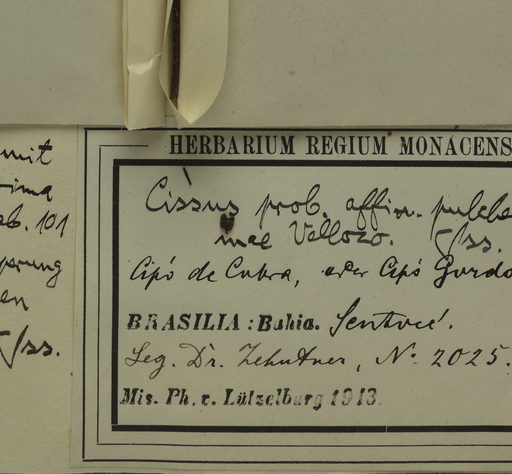 mit
rima
eb. 101
prung
en
G/ss.
HERBARIUM REGIUM MONACENS
Cissus prob. affin. pulche
imae Vellozo. G/ss.
Cipó de Cobra, oder Cipó Gordo
BRASILIA: Bahia.
Leg. Dr. Zehntner, No 2025.
Mis. Ph. v. Lützelburg 1913.